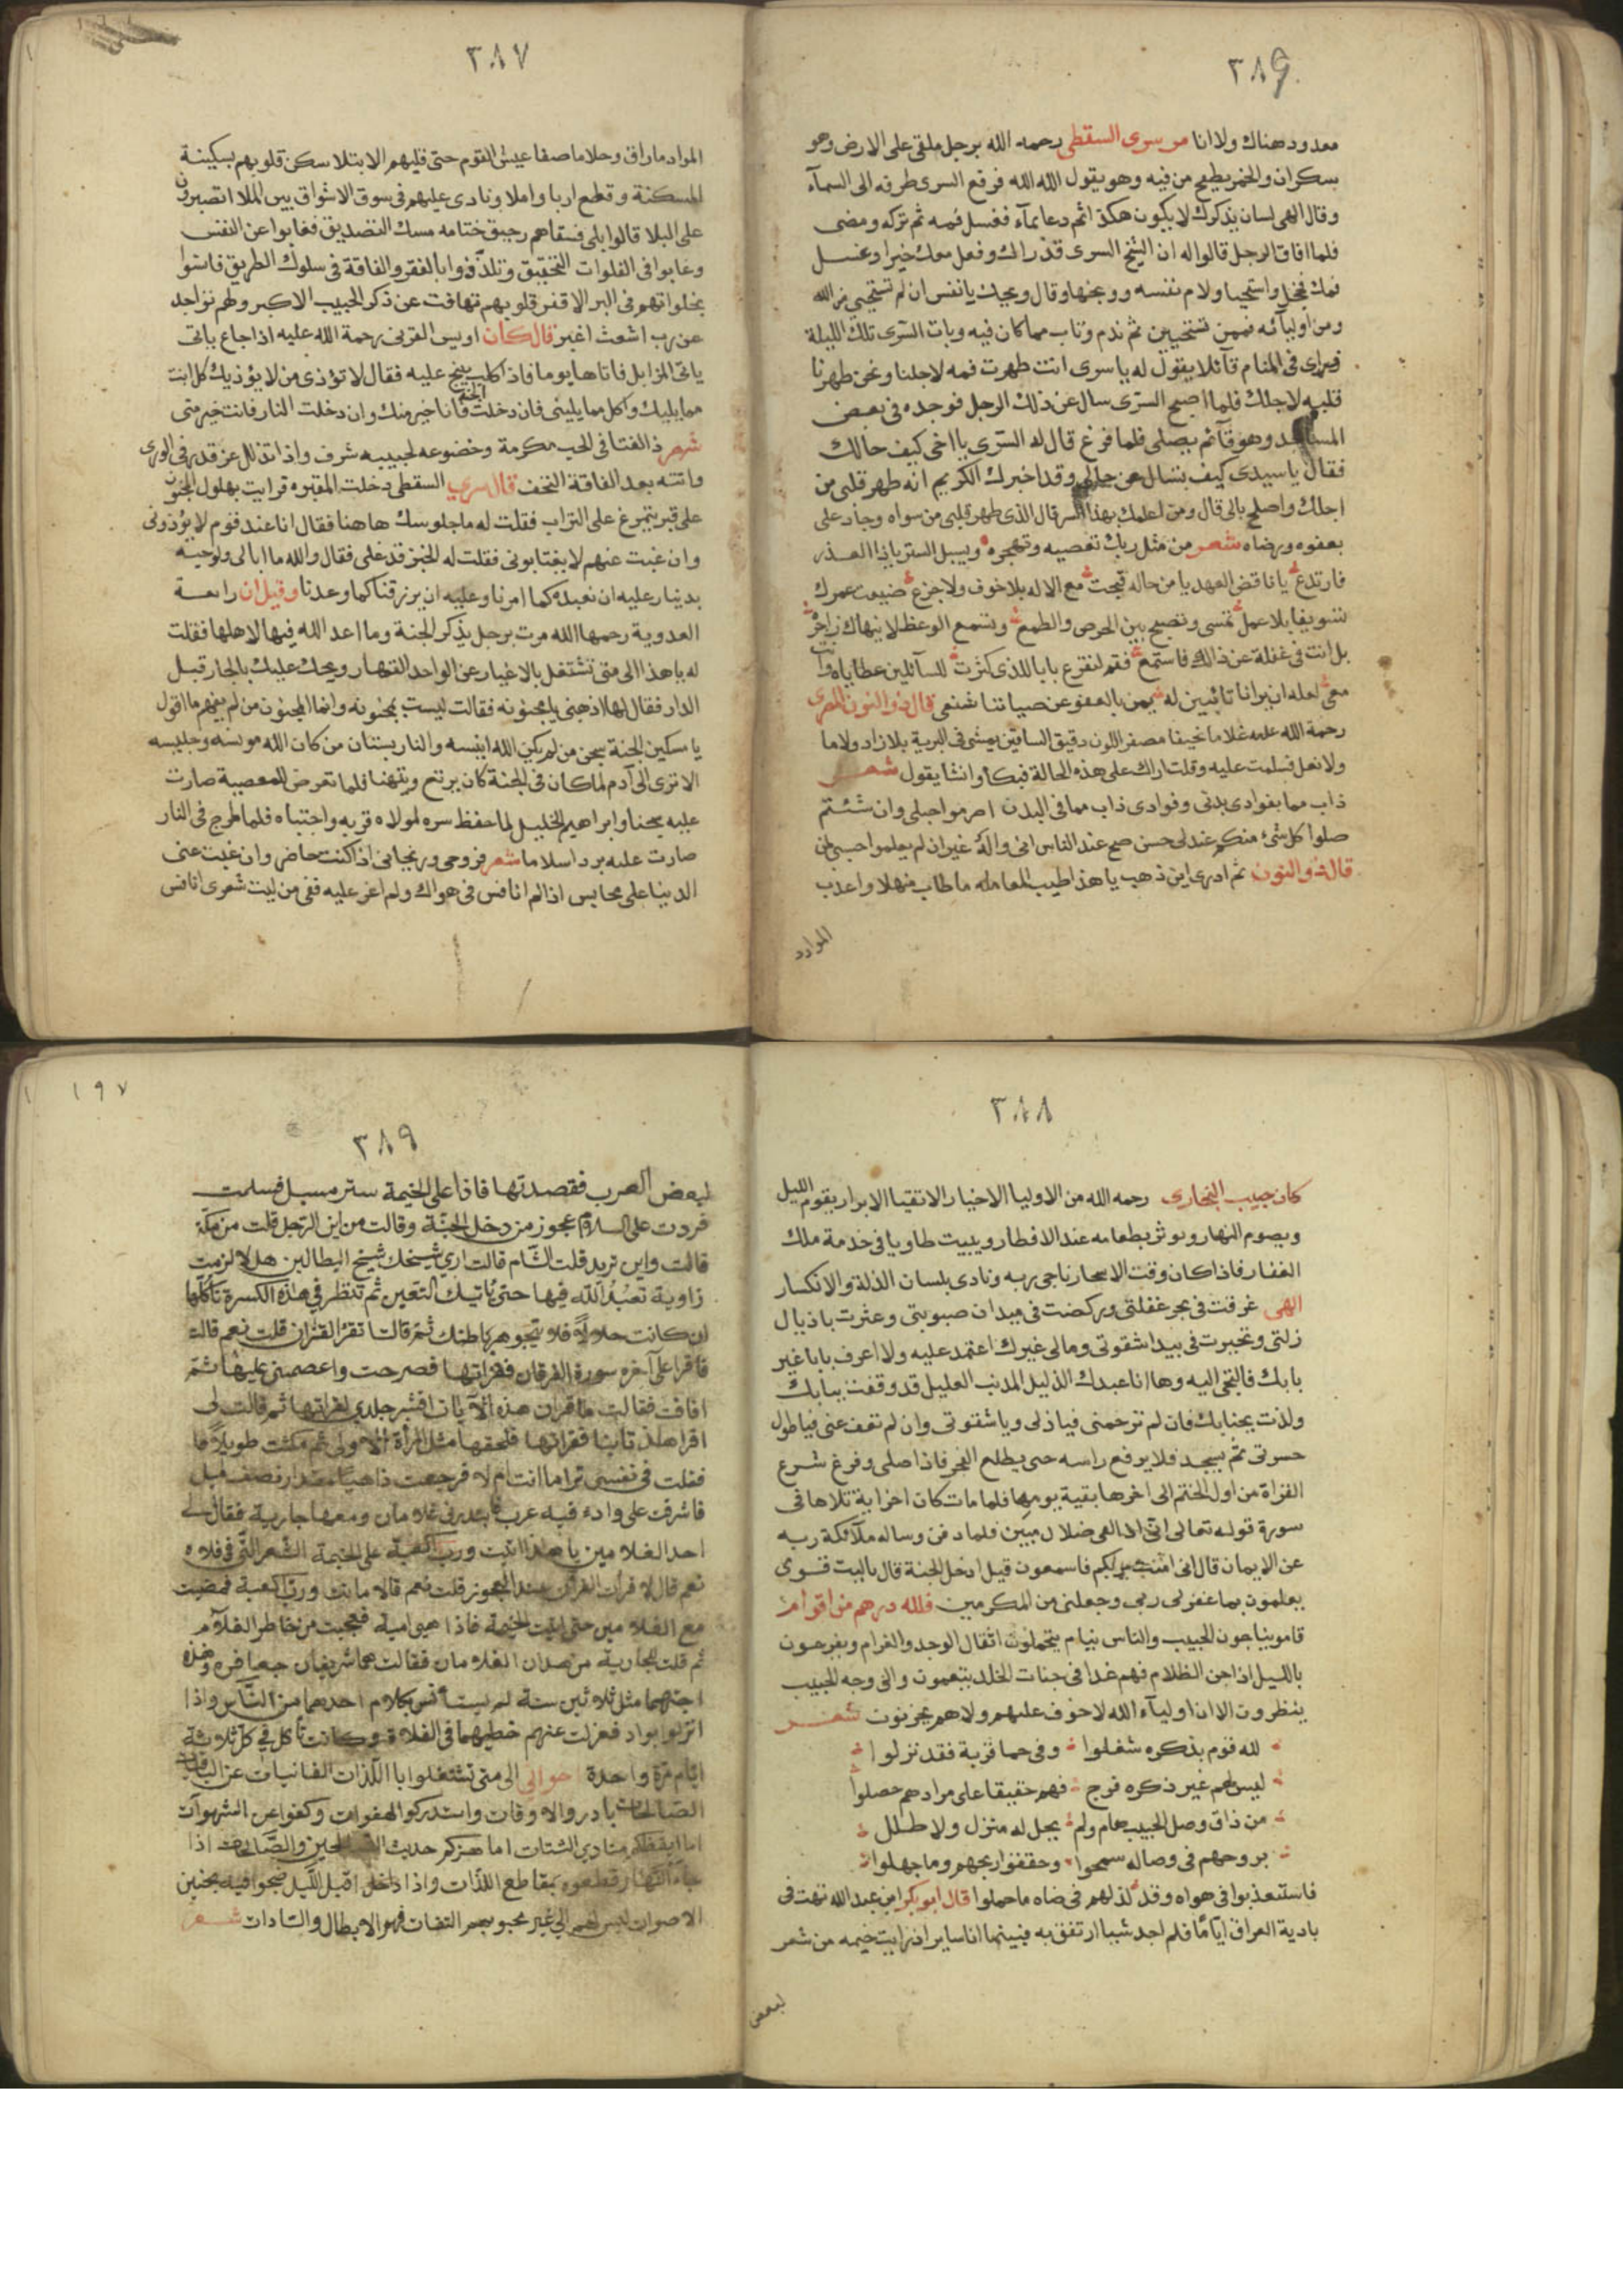 ٣٨٩
معدود هناك ولا انا مر سرى السقطى رحمه الله برجل ملقى على الارض وهو
سكران والخمر يطفح من فيه وهو يقول الله الله فرفع السرى طرفه الى السمآء
وقال الهى لسان يذكرك لا يكون هكذا ثم دعا بمآء فغسل فمه ثم تركه ومضى
فلما افاق الرجل قالوا له ان الشيخ السرى قد راك وفعل معك خيرا وغسل
فمك فخجل واستحيا ولام نفسه ووبخها وقال ويحك يا نفس ان لم تستحيى من الله
ومن اوليآئه فممن تستحيين ثم ندم وتاب مما كان فيه وبات السرى تلك الليلة
فراى فى المنام قآئلا يقول له يا سرى انت طهرت فمه لاجلنا ونحن طهرنا
قلبه لاجلك فلما اصبح السرى سال عن ذلك الرجل فوجده فى بعض
المساجد وهو قآئم يصلى فلما فرغ قال له السرى يا اخى كيف حالك
فقال يا سيدى كيف تسال عن حالى وقد اخبرك الكريم انه طهر قلبى من
اجلك واصلح بالى قال ومن اعلمك بهذا السر قال الذى طهر قلبى من سواه وجاد على
بعفوه ورضاه شعر من مثل ربك تعصيه وتهجره ويسبل الستر ياذا الغدر
فارتدع يا ناقض العهد يا من حاله قبحت مع الاله بلا خوف ولا جزع ضيعت عمرك
تسويفا بلا عمل تمسى وتصبح بين الحرص والطمع وتسمع الوعظ لا ينهاك زاجر
بل انت فى غفلة عن ذاك فاستمع فقم لنقرع بابا للذى كثرت للسآئلين عطاياه وآت
معى لعله ان يرانا تائبين له يمن بالعفو عن صباتنا شنعى قال ذو النون المصرى
رحمة الله عليه غلاما نحيفا مصفر اللون دقيق الساقين يمشى فى البرية بلا زاد ولا ما
ولا نعل فسلمت عليه وقلت اراك على هذه الحالة فبكا وانشا يقول شعر
ذاب مما بفوادى بدنى وفوادى ذاب مما فى البدن اصرموا حبلى وان شئتم
صلوا كل شئ منكم عندى حسن صح عند الناس انى والهٌ غير ان لم يعلموا حبى لمن
قال ذو النون ثم ادرى اين ذهب يا هذا طيب المعامله ما طاب منهلا واعذب
الموارد
٣٨٧
الموارد ما راق وحلا ما صفا عيش القوم حتى قليهم الابتلا سكن قلوبهم بسكينة
المسكنة وقطع اربا واملا ونادى عليهم فى سوق الاشواق بين الملا اتصبرون
على البلا قالوا بلى فسقاهم رحيق ختامه مسك التصديق فغابوا عن النفس
وغابوا فى الفلوات التحقيق وتلذذوا بالفقر والفاقة فى سلوك الطريق فانسوا
بخلواتهم فى البر الاقفر قلوبهم تهافت عن ذكر الحبيب الاكبر ولهم تواجد
عن رب اشعث اغبر قال كان اويس القرنى رحمة الله عليه اذا جاع ياتى
ياتى المزابل فاتاها يوما فاذا كلب ينبح عليه فقال لا تؤذى من لا يؤذيك كل انت
مما يليك واكل مما يلينى فان دخلت الجنة فانا خير منك وان دخلت النار فانت خير منى
شعر ذا الفتا فى الحب مكرمة وخضوعه لحبيبه شرف واذا تذلل عز قدره فى الورى
واتته بعد الفاقة التحف قال سرى السقطى دخلت المقبره فرايت بهلول المجنون
على قبر يتمرغ على التراب فقلت له ما جلوسك هاهنا فقال انا عند قوم لا يؤذونى
وان غبت عنهم لا يغتابونى فقلت له الخبز قد غلى فقال والله ما ابالى ولو حبه
بدينار عليه ان نعبده كما امرنا وعليه ان يرزقنا كما وعدنا وقيل ان رابعة
العدوية رحمها الله مرت برجل يذكر الجنة وما اعد الله فيها لاهلها فقلت
له يا هذا الى متى تشتغل بالاغيار عن الواحد القهار ويحك عليك بالجار قبل
الدار فقال لها اذهبى يا مجنونه فقالت ليست بمجنونه وانما المجنون من لم يفهم ما اقول
يا مسكين الجنة سجن من لم يكن الله انيسه والنار بستان من كان الله مونسه وجليسه
الا ترى الى آدم لما كان فى الجنة كان يرتع ويتهنا فلما تعرض للمعصية صارت
عليه سجنا وابراهيم الخليل لما حفظ سره لمولاه قربه واجتباه فلما طرح فى النار
صارت عليه برد اسلاما شعر فروحى وريحانى اذا كنت حاضر وان غبت عنى
الدنيا على محابس اذا لم انافس فى هواك ولم اغر عليه ففى من ليت شعرى انافس
٣٨٨
كان حبيب النجارى رحمه الله من الاوليا الاخيار الاتقيا الابرار يقوم الليل
ويصوم النهار ويوثر بطعامه عند الافطار ويبيت طاويا فى خدمة ملك
الغفار فاذا كان وقت الاسحار ناجى ربه ونادى بلسان الذلة والانكسار
الهى غرقت فى بحر غفلتى وركضت فى ميدان صبوتى وعثرت باذيال
زلتى وتحيرت فى بيدا شقوتى ومالى غيرك اعتمد عليه ولا اعرف بابا غير
بابك فالتجى اليه وها انا عبدك الذليل المذنب العليل قد وقفت ببابك
ولذت بجنابك فان لم ترحمنى فياذلى ويا شقوتى وان لم تعف عنى فيا طول
حسرتى ثم يسجد فلا يرفع راسه حتى يطلع الفجر فاذا صلى وفرغ شرع
القراة من اول الختم الى اخرها بقية يومها فلما مات كان اخر اية تلاها فى
سورة قوله تعالى انى اذا لفى ضلال مبين فلما دفن وساله ملآئكة ربه
عن الايمان قال انى امنت بربكم فاسمعون قيل ادخل الجنة قال ياليت قومى
يعلمون بما غفر لى ربى وجعلنى من المكرمين فلله درهم من اقوامز
قامو يناجون الحبيب والناس نيام يتحملون اثقال الوجد والغرام ويفرحون
بالليل اذا جن الظلام فهم غدا فى جنات الخلد يتنعمون والى وجه الحبيب
ينظرون الا ان اوليآء الله لا خوف عليهم ولا هم يحزنون شعر
لله قوم بذكره شغلوا وفى حما قربة فقد نزلوا
ليس لهم غير ذكره فرج فهم حقيقا على مرادهم حصلوا
من ذاق وصل الحبيب هام ولم يحل له منزل ولا طلل
بروحهم فى وصاله سمحوا وحققوا ربحهم وما جهلوا
فاستعذبوا فى هواه وقد لذ لهم فى ضاه ما حملوا قال ابو بكر ابن عبد الله تهت فى
بادية العراق اياما فلم اجد شيا ارتفق به فبينما انا ساير اذ رايت خيمه من شعر
لبعض
١٩٧
٣٨٩
لبعض العرب فقصدتها فاذا على الخيمة ستر مسبل فسلمت
فردت على السلام عجوز من دخل الخيمة وقالت من اين الرجل قلت من مكة
قالت واين تريد قلت الشام قالت ارى شيخك شيخ البطالين هلا لزمت
زاوية تعبد الله فيها حتى ياتيك اليقين ثم تنظر فى هذه الكسرة تاكلها
ان كانت حلالا فلا يتجوهر باطنك ثم قالت اتقرا القران قلت نعم قالت
فاقرا على آخره سورة الفرقان فقراتها فصرخت واغصمى عليها ثم
افاقت فقالت ما قران هذه الآيات اقشعر جلدى لقراتها ثم قالت لى
اقراها تانيا فقراتها فلحقها مثل المرأة الاولى ثم مكثت طويلا
فقلت فى نفسى تراها انت ام لا فرجعت ذاهبا مقدار نصف ميل
فاشرفت على وادء فيه عرب غلامان ومعها جارية فقال لى
احد الغلامين يا هذا اتيت ورب الكعبة على الخيمة الشعر التى فى فلاه
نعم قال لا قرات القران عند العجوز قلت نعم قالا ماتت ورب الكعبة فمضيت
مع الغلامين حتى اتيت الخيمة فاذا هى ميتة فعجبت من خاطر الغلام
ثم قلت للجارية من هذان الغلامان فقالت هما شريفان جعافره وهذه
اختهما مثل ثلاثين سنة لم يستأنس بكلام احدهما من الناس واذا
انزلوا بواد فعزلت عنهم خطيهما فى الفلاة وكانت تأكل فى كل ثلاثة
ايام مرة واحدة اخوانى الى متى تشتغلوا با اللذات الفانيات عن الباقيات
الصالحات بادروا الاوقات واستدركوا الهفوات وكفوا عن الشهوات
اما ايقظكم منادى الشتات اما هزكم حديث الصالحين والصالحات اذا
جاء النهار قطعوه بمقاطع اللذات واذا دخل اقبل الليل ضجوا فيه بحنين
الاصوات ليس لهم الى غير محبوبهم التفات فهم الابطال والسادات شعر